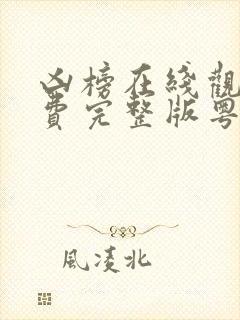 凶榜在綫觀
費完整版粵
風凌北